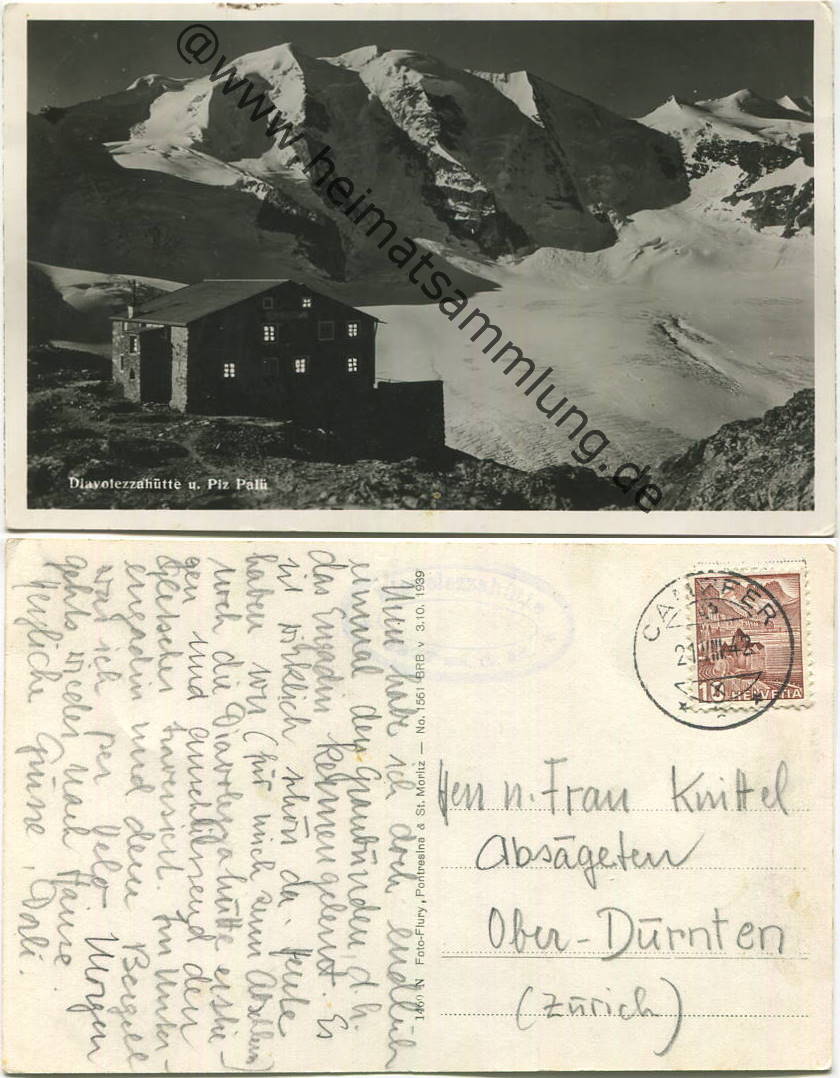 @www.heimatsammlung.de
Diavolezzahütte u. Piz Palü
Nun habe ich doch endlich
einmal den Graubünden, d.h.
das Engadin kennengelernt. Es
ist wirklich schön da. Heute
haben wir (für mich zum Abschluss)
noch die Diavolezzahütte erstie-
gen und anschliessend den
Gletscher traversiert. Im Unter-
engadin und dem Bergell
war ich per Velo. Morgen
gehts wieder nach Hause.
Herzliche Grüsse, Doli.
1460 N Foto-Flury, Pontresina & St. Moritz — No. 1561 BRB v. 3.10. 1939
Diavolezzahütte
CAMPFER
21.VIII.42
18
10 HELVETIA
Herrn n. Frau Knittel
Absägeten
Ober-Dürnten
(Zürich)